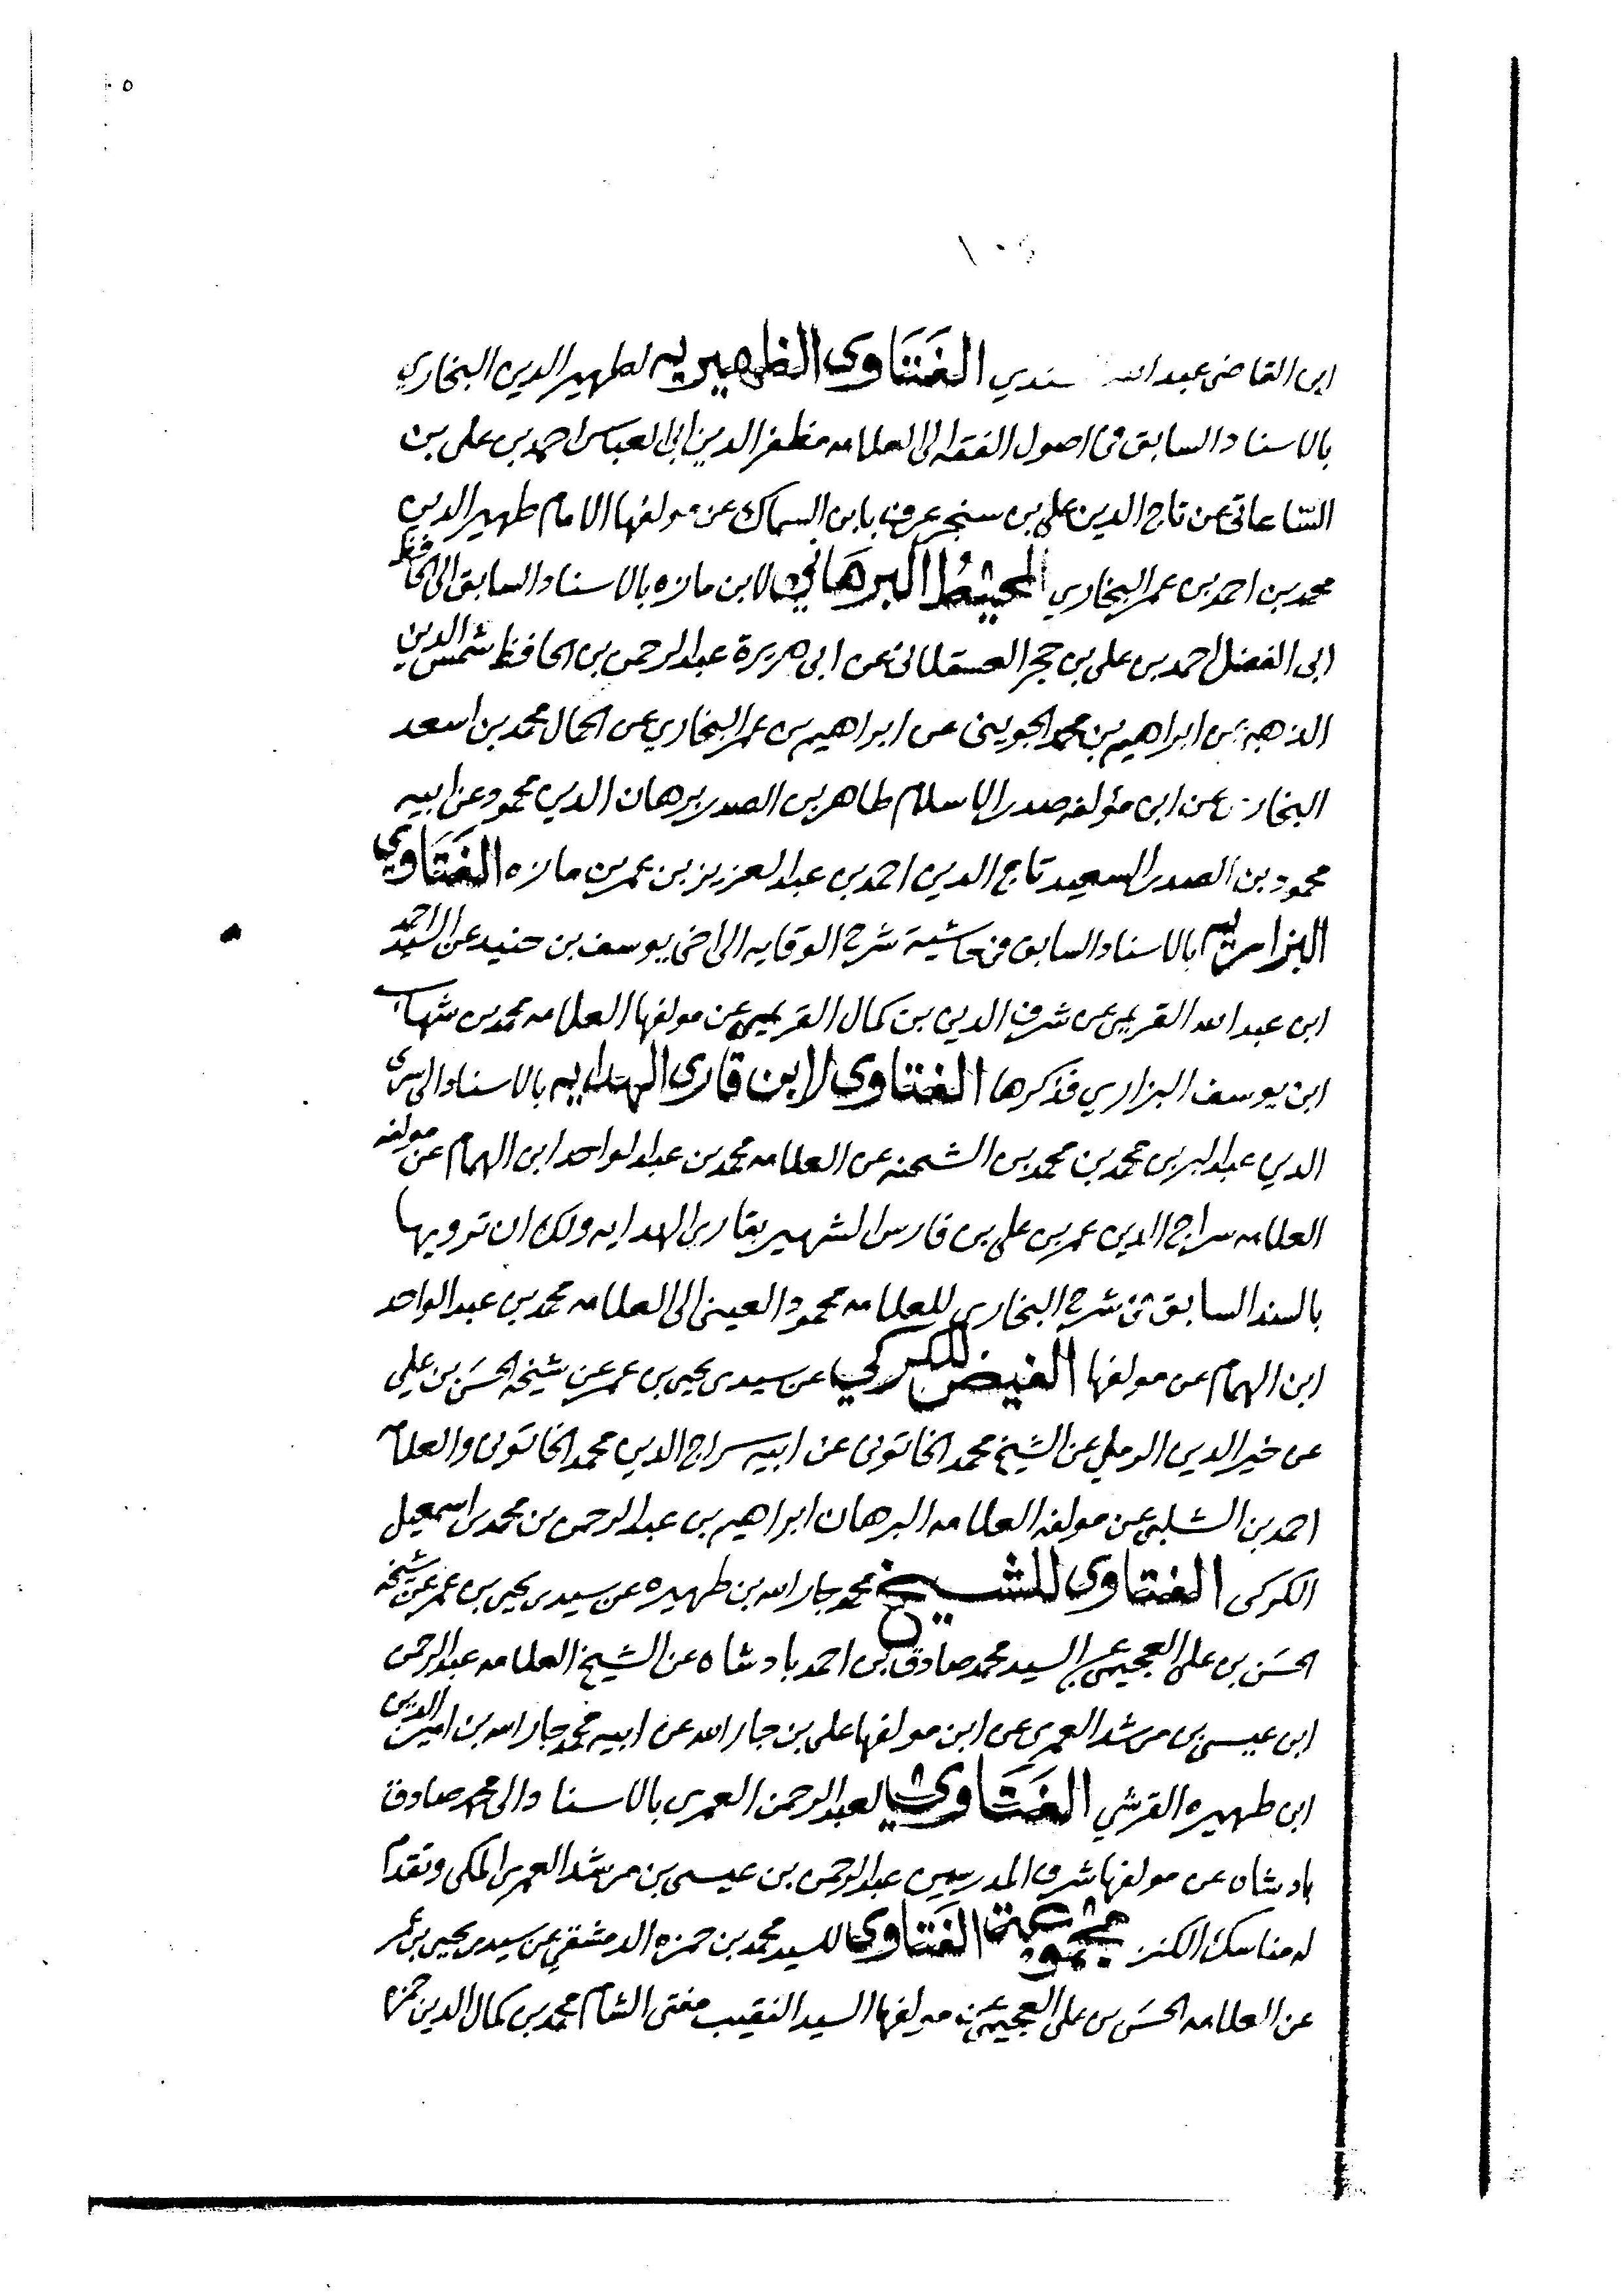 ابن القاضي عبد الله سندي الفَتَاوى الظهيريه لظهير الدين البخاري
بالاسناد السابق في اصول الفقه الى العلامه مظفر الدين ابي العباس احمد بن علي بن
السّاعاتي عن تاج الدين علي بن سنجر عرف بابن السماك عن مولفها الامام ظهير الدين
محمد بن احمد بن عمر البخاري المحيطُ البرهاني لابن مازه بالاسناد السابق الى الحافظ
ابي الفضل احمد بن علي بن حجر العسقلاني عن ابي هريرة عبد الرحمن بن الحافظ شمس الدين
الذهبي عن ابراهيم بن محمد الجويني عن ابراهيم بن عمر البخاري عن الجمال محمد بن اسعد
البخاري عن ابن مؤلفه صدر الاسلام طاهر بن الصدر برهان الدين محمود عن ابيه
محمود بن الصدر السعيد تاج الدين احمد بن عبد العزيز بن عمر بن مازه الفَتَاوي
البزازيه بالاسناد السابق في حاشية شرح الوقايه الى اخي يوسف بن جنيد عن السيد احمد
ابن عبد الله القريمي عن شرف الدين بن كمال القريمي عن مولفها العلامه محمد بن شهاب
ابن يوسف البزازي فذكرها الفتاوى لابن قارى الهدايه بالاسناد الى سرى
الدين عبد البر بن محمد بن محمد بن الشحنه عن العلامه محمد بن عبد الواحد ابن الهمام عن مولفه
العلامه سراج الدين عمر بن علي بن فارس الشهير بقارى الهدايه ولك ان ترويها
بالسند السابق في شرح البخاري للعلامه محمود العيني الى العلامه محمد بن عبد الواحد
ابن الهمام عن مولفها الفيض للكركي عن سيدى يحيى بن عمر عن شيخه الحسَن بن علي
عن خير الدين الرملي عن الشيخ محمد الخانوتى عن ابيه سراج الدين محمد الخانوتى والعلامه
احمد بن الشلبي عن مولفه العلامه البرهان ابراهيم بن عبد الرحمن بن محمد بن اسمعيل
الكركى الفتاوى للشيخ محمد جار الله بن ظهيره عن سيدى يحيى بن عمر عن شيخه
الحسَن بن علي العجيمي عن السيد محمد صادق بن احمد بادشاه عن الشيخ العلامه عبد الرحمن
ابن عيسى بن مرشد العمرى عن ابن مولفها علي بن جار الله عن ابيه محمد جار الله بن امين الدين
ابن ظهيره القرشي الفَتَاوي لعبد الرحمن العمرى بالاسناد الى محمد صادق
بادشاه عن مولفها شرف المدرسين عبد الرحمن بن عيسى بن مرشد العمرى المكى وتقدم
له مناسك الكنز مجموعة الفَتَاوى للسيد محمد بن حمزه الدمشقي عن سيدى يحيى بن عمر
عن العلامه الحسَن بن علي العجيمي عن مولفها السيد النقيب مفتى الشام محمد بن كمال الدين حمزه